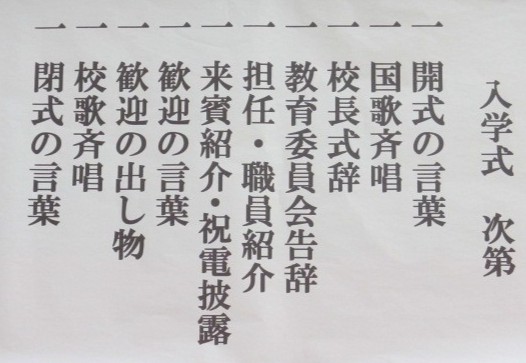 入学式　次第
一　開式の言葉
一　国歌斉唱
一　校長式辞
一　教育委員会告辞
一　担任・職員紹介
一　来賓紹介・祝電披露
一　歓迎の言葉
一　歓迎の出し物
一　校歌斉唱
一　閉式の言葉